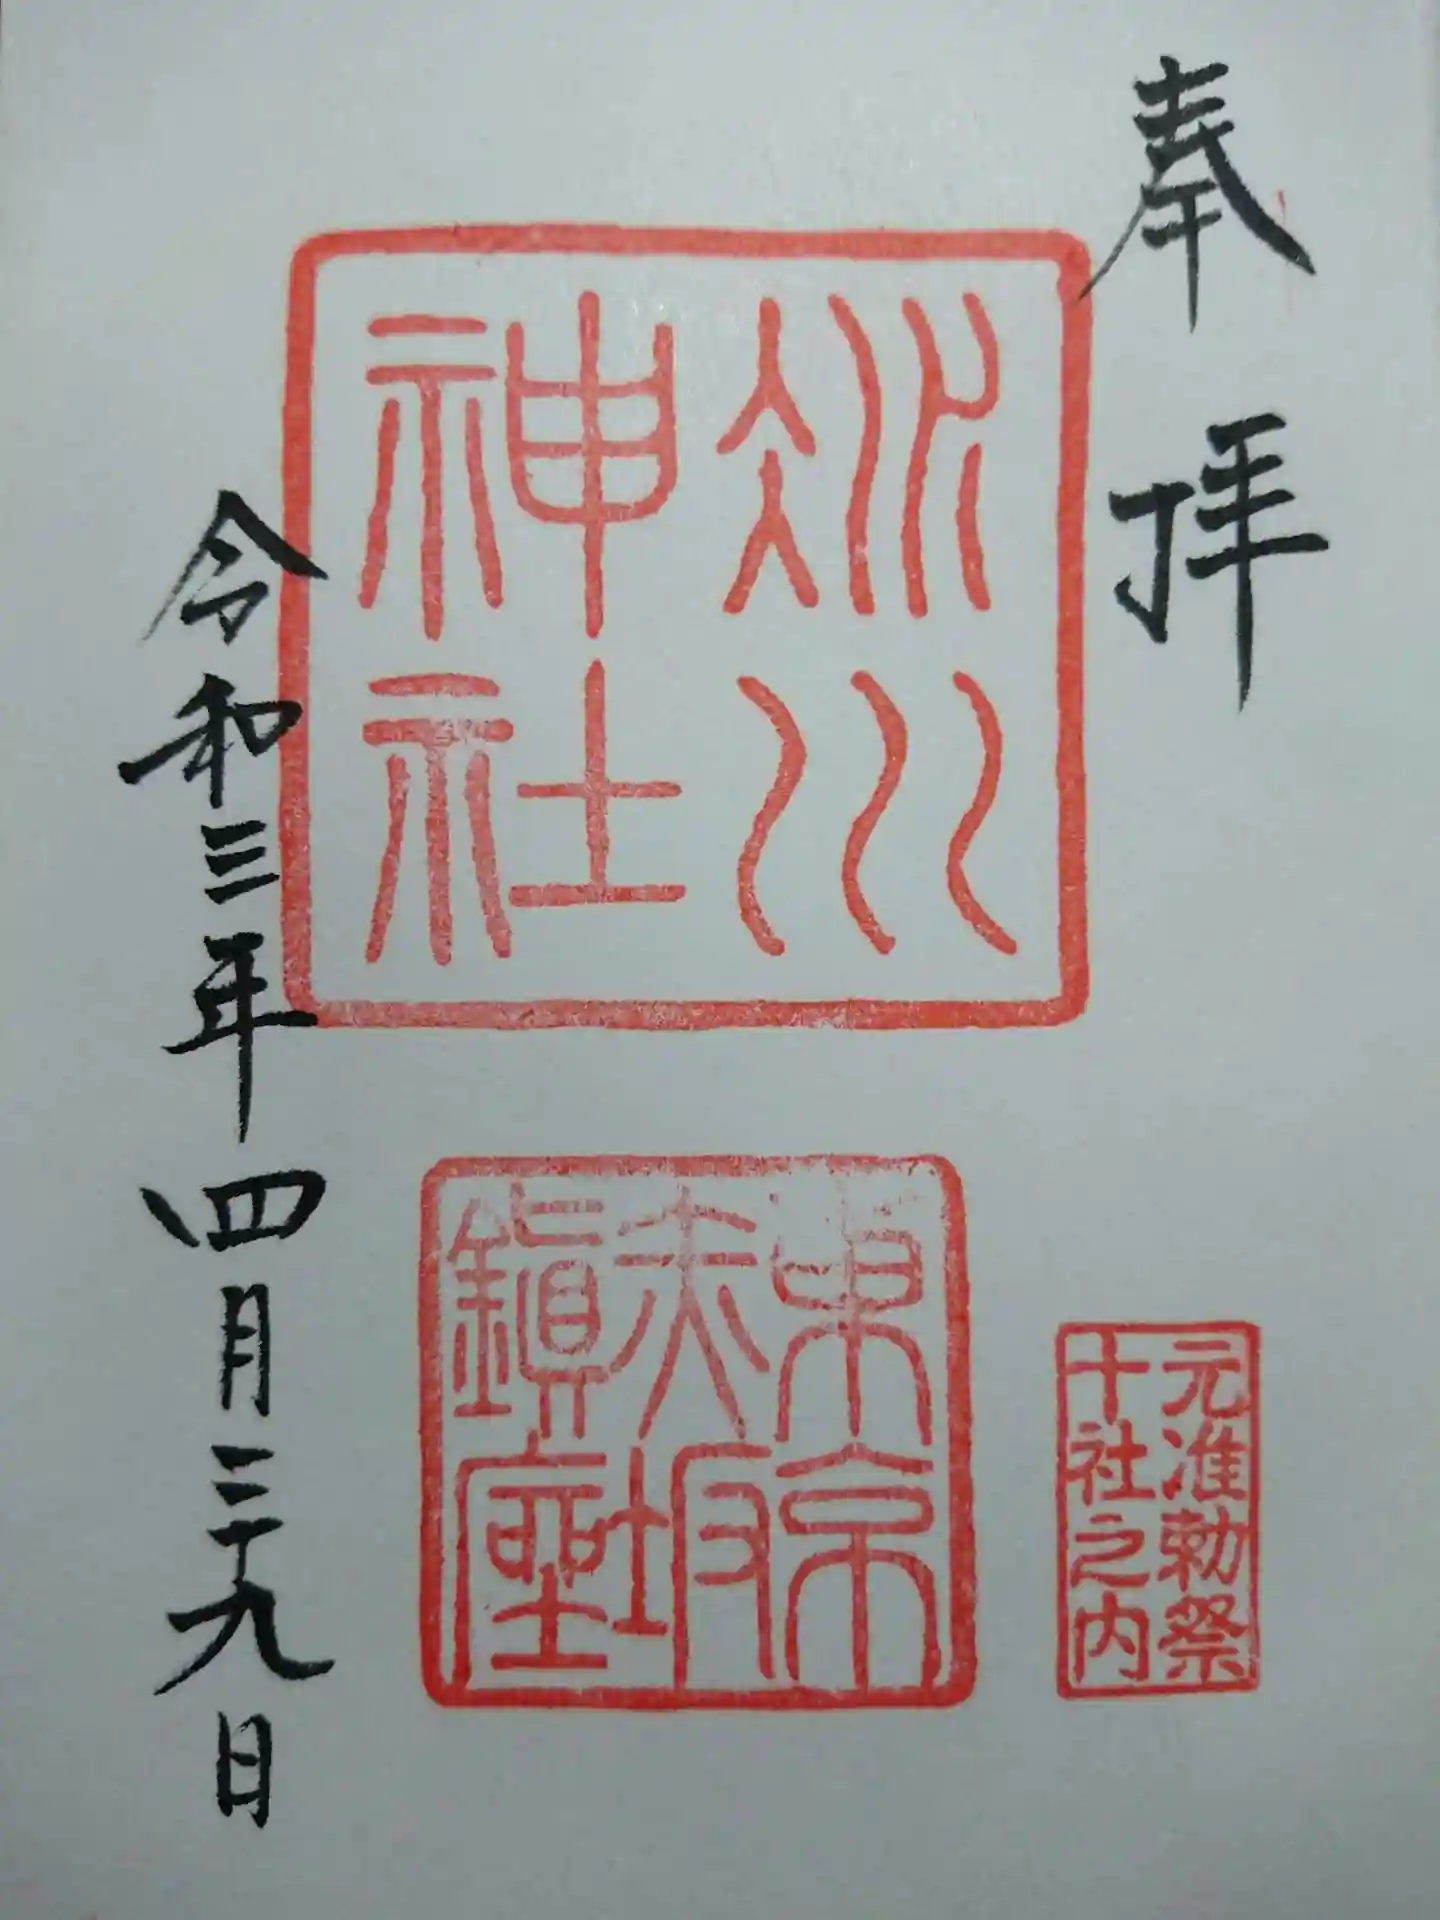 奉拝
氷川
神社
元准勅祭
十社之内
東京
赤坂
鎮座
令和三年四月二十九日